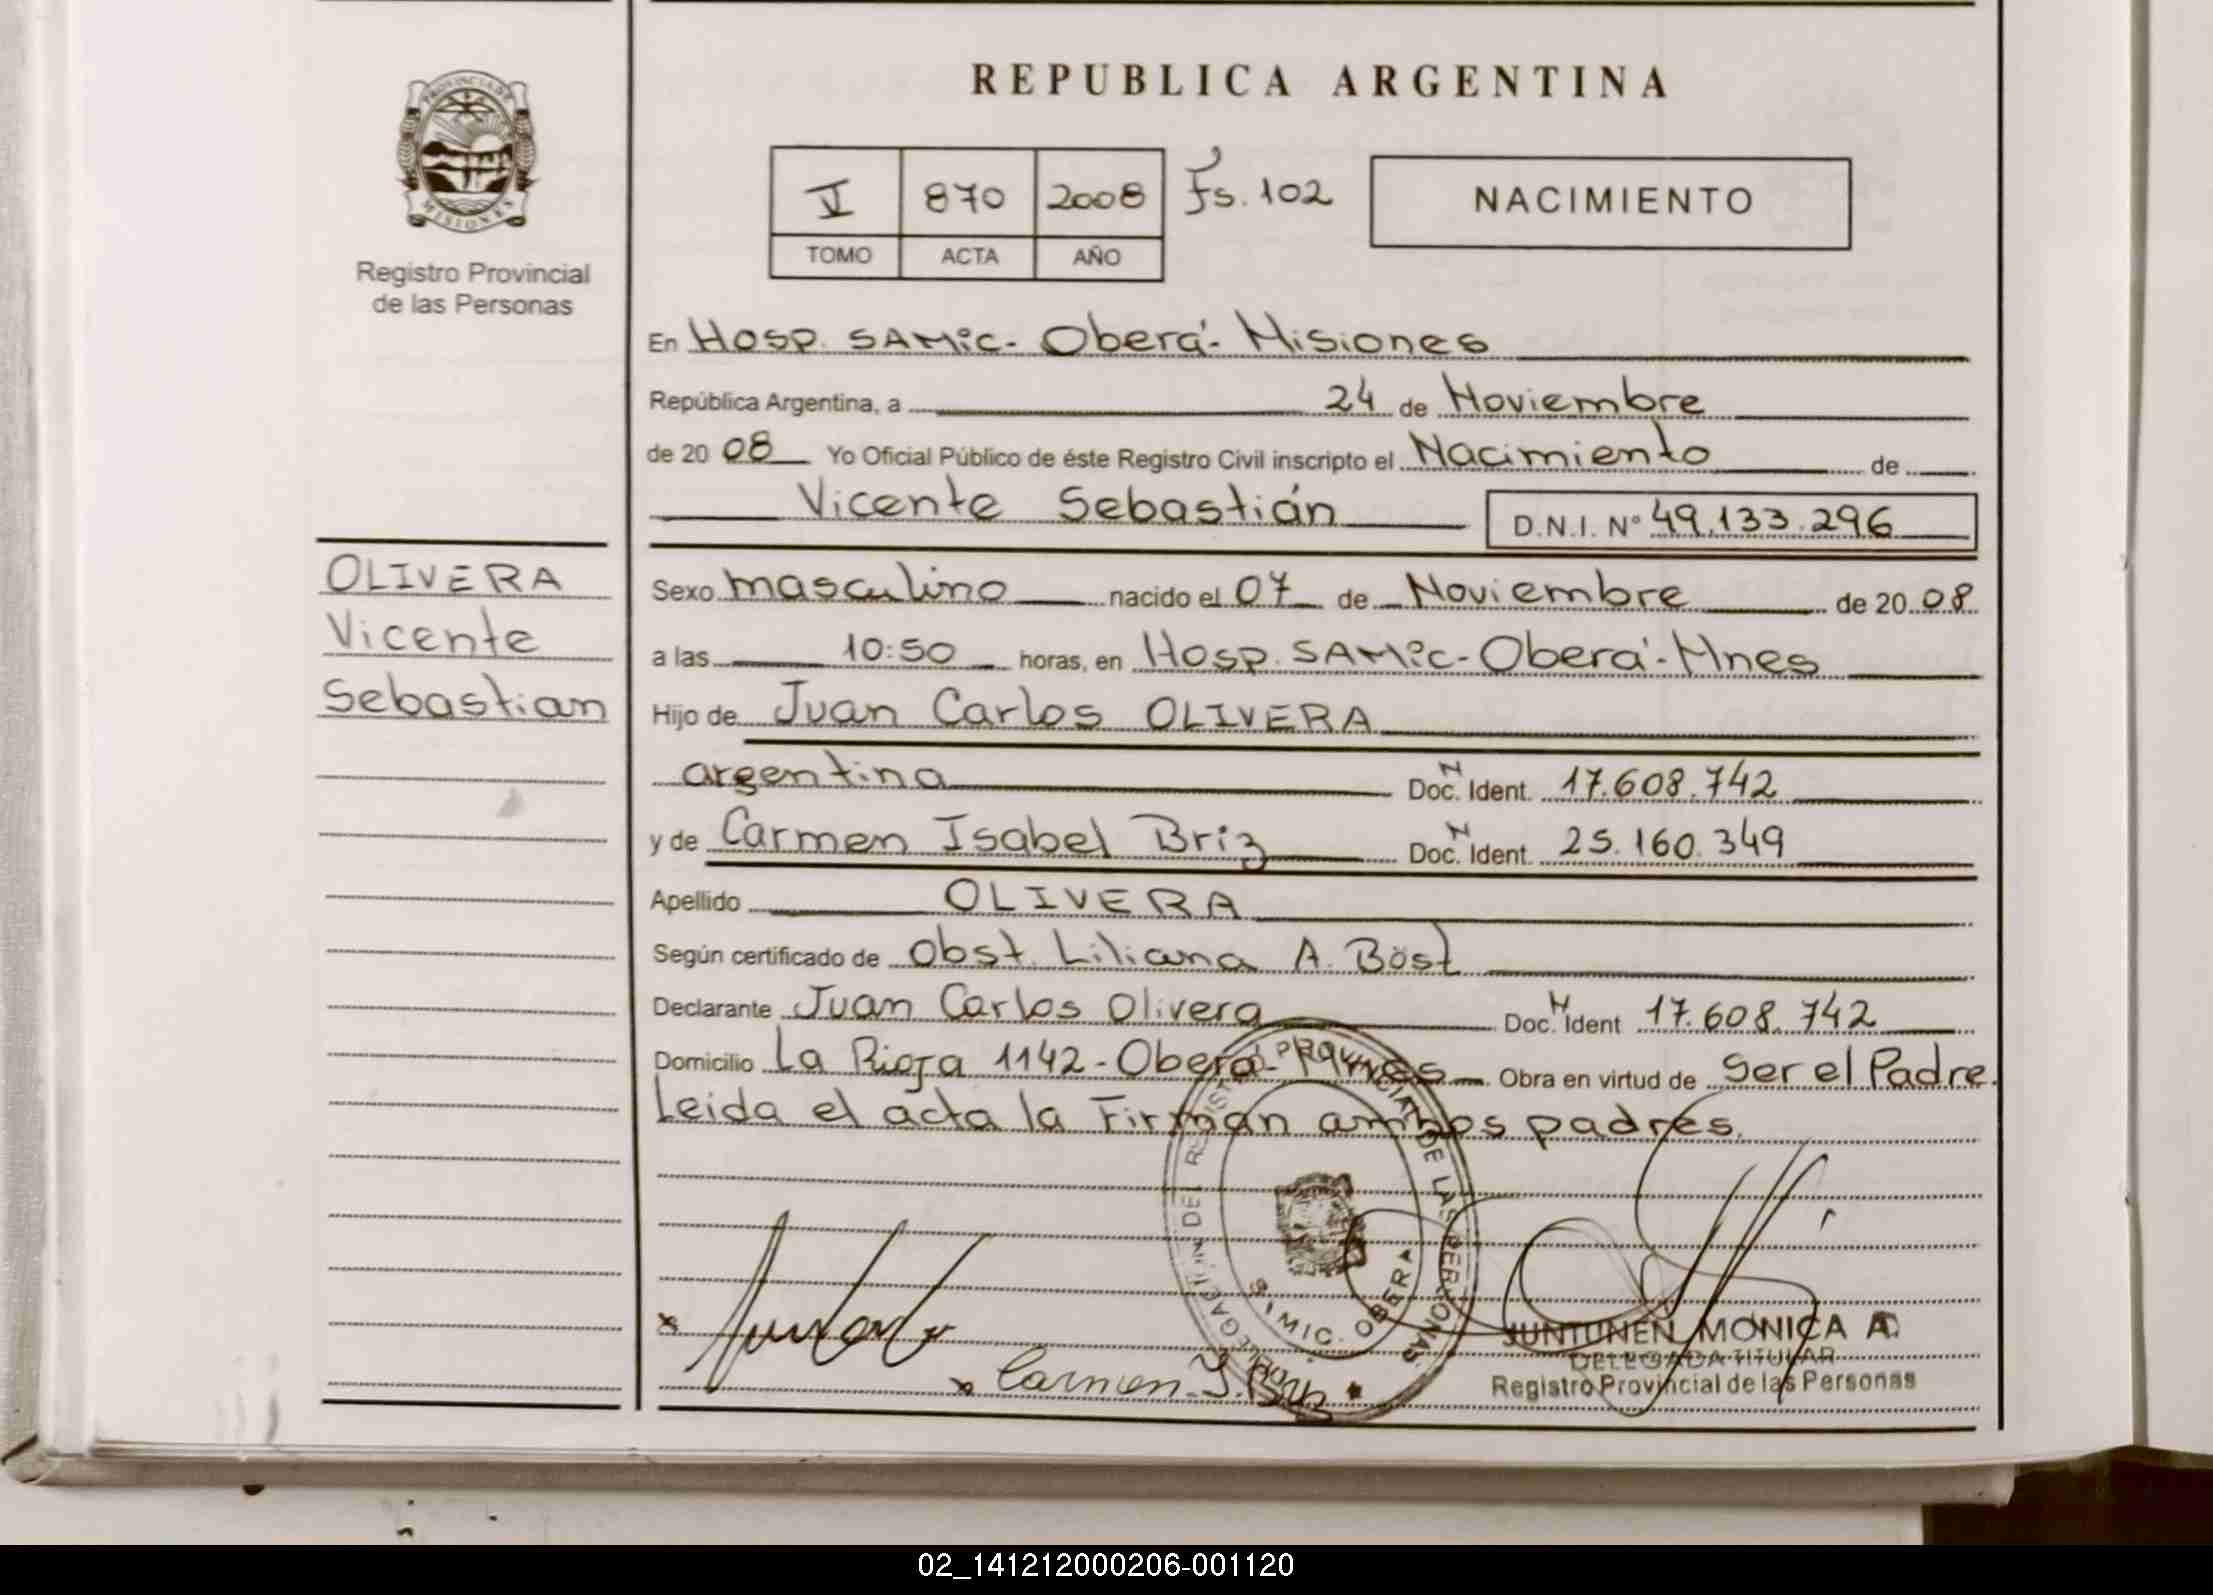 PROVINCIA DE
MISIONES
Registro Provincial
de las Personas
OLIVERA
Vicente
Sebastian
REPUBLICA ARGENTINA
V 870 2008 Fs. 102
TOMO ACTA AÑO
NACIMIENTO
En Hosp. SAMic - Oberá - Misiones
República Argentina, a 24 de Noviembre
de 20 08 Yo Oficial Público de éste Registro Civil inscripto el Nacimiento de
Vicente Sebastián D.N.I. Nº 49.133.296
Sexo masculino nacido el 07 de Noviembre de 20 08
a las 10:50 horas, en Hosp. SAMic - Oberá - Mnes
Hijo de Juan Carlos OLIVERA
argentina Doc. N Ident. 17.608.742
y de Carmen Isabel Briz Doc. N Ident. 25.160.349
Apellido OLIVERA
Según certificado de Obst. Liliana A. Böst
Declarante Juan Carlos Olivera Doc. N Ident 17.608.742
Domicilio La Rioja 1142 - Oberá - Mnes Obra en virtud de Ser el Padre.
Leida el acta la Firman ambos padres.
DELEGACIÓN DEL REGISTRO PROVINCIAL DE LAS PERSONAS
OBERA
x
x Carmen I. Briz
JUNTUNEN MONICA A.
DELEGADA TITULAR
Registro Provincial de las Personas
02_141212000206-001120